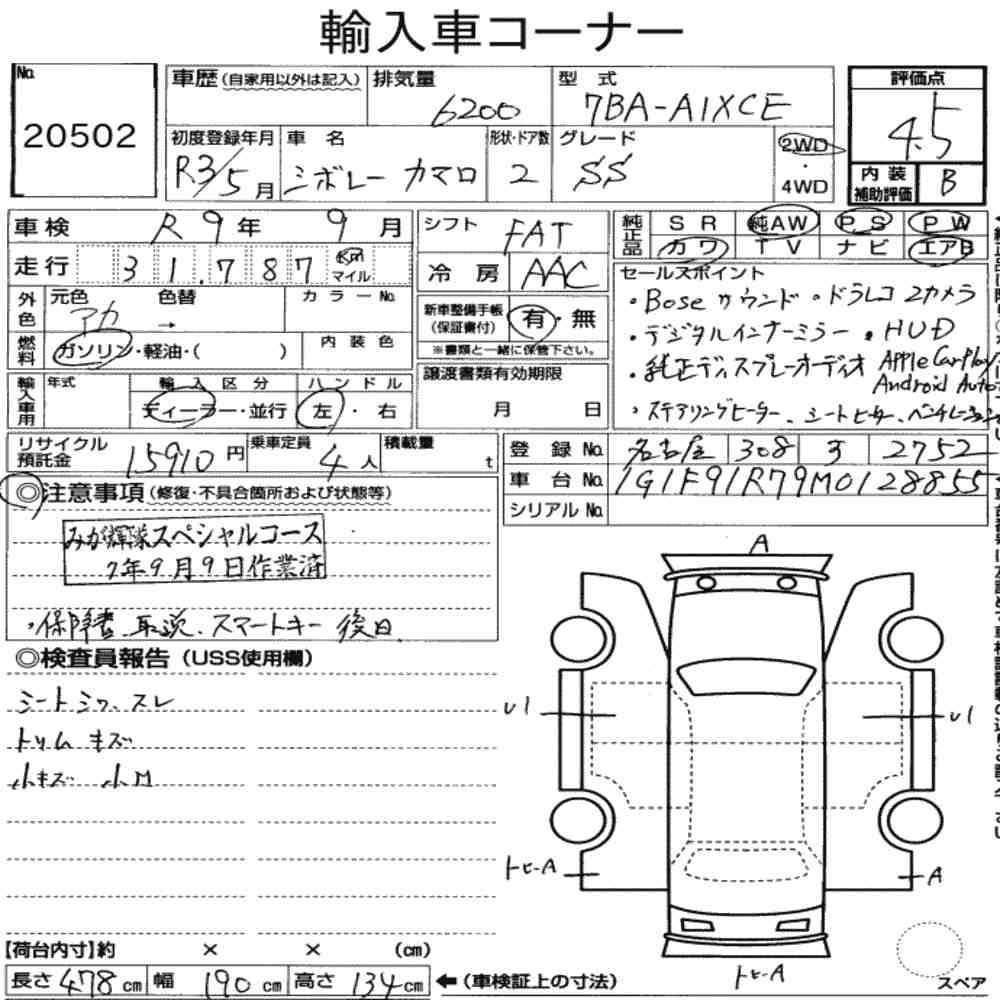 輸入車コーナー
No.
20502
車歴(自家用以外は記入)
排気量
6200
型 式
7BA-A1XCE
評価点
4.5
初度登録年月
R3/5月
車 名
シボレー カマロ
形状・ドア数
2
グレード
SS
2WD
・
4WD
内 装
補助評価
B
車検 R 9年 9月
走行 31,787 km マイル
外色
元色 アカ
色替 →
カラーNo.
燃料
ガソリン・軽油・( )
内 装 色
輸入車用
年式
輸 入 区 分
ディーラー・並行
ハ ン ド ル
左・右
シフト FAT
冷 房 AAC
新車整備手帳
(保証書付)
有・無
※書類と一緒に保管下さい。
譲渡書類有効期限
月 日
純正品
SR 純AW PS PW
カワ TV ナビ エアB
セールスポイント
・Bose サウンド ・ドラレコ 2カメラ
・デジタルインナーミラー ・HUD
・純正ディスプレーオーディオ Apple CarPlay
Android Auto
・ステアリングヒーター、シートヒーター、ベンチレーション
リサイクル
預託金
15910円
乗車定員 4人
積載量 t
登 録 No. 名古屋 308 す 2752
車 台 No. 1G1F91R79M0128855
シリアルNo.
◎注意事項(修復・不具合箇所および状態等)
みが輝隊スペシャルコース
7年9月9日作業済
・保障書、取説、スマートキー 後日
◎検査員報告(USS使用欄)
シート シワ、スレ
トリム キズ
小キズ 小M
A
U1
U1
トヒ-A
A
トヒ-A
スペア
【荷台内寸】約 × × (cm)
長さ 478cm 幅 190cm 高さ 134cm ←(車検証上の寸法)